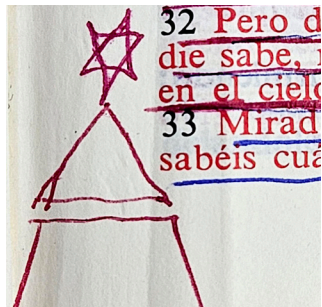 32 Pero d
die sabe,
en el cielo
33 Mirad
sabéis cuá